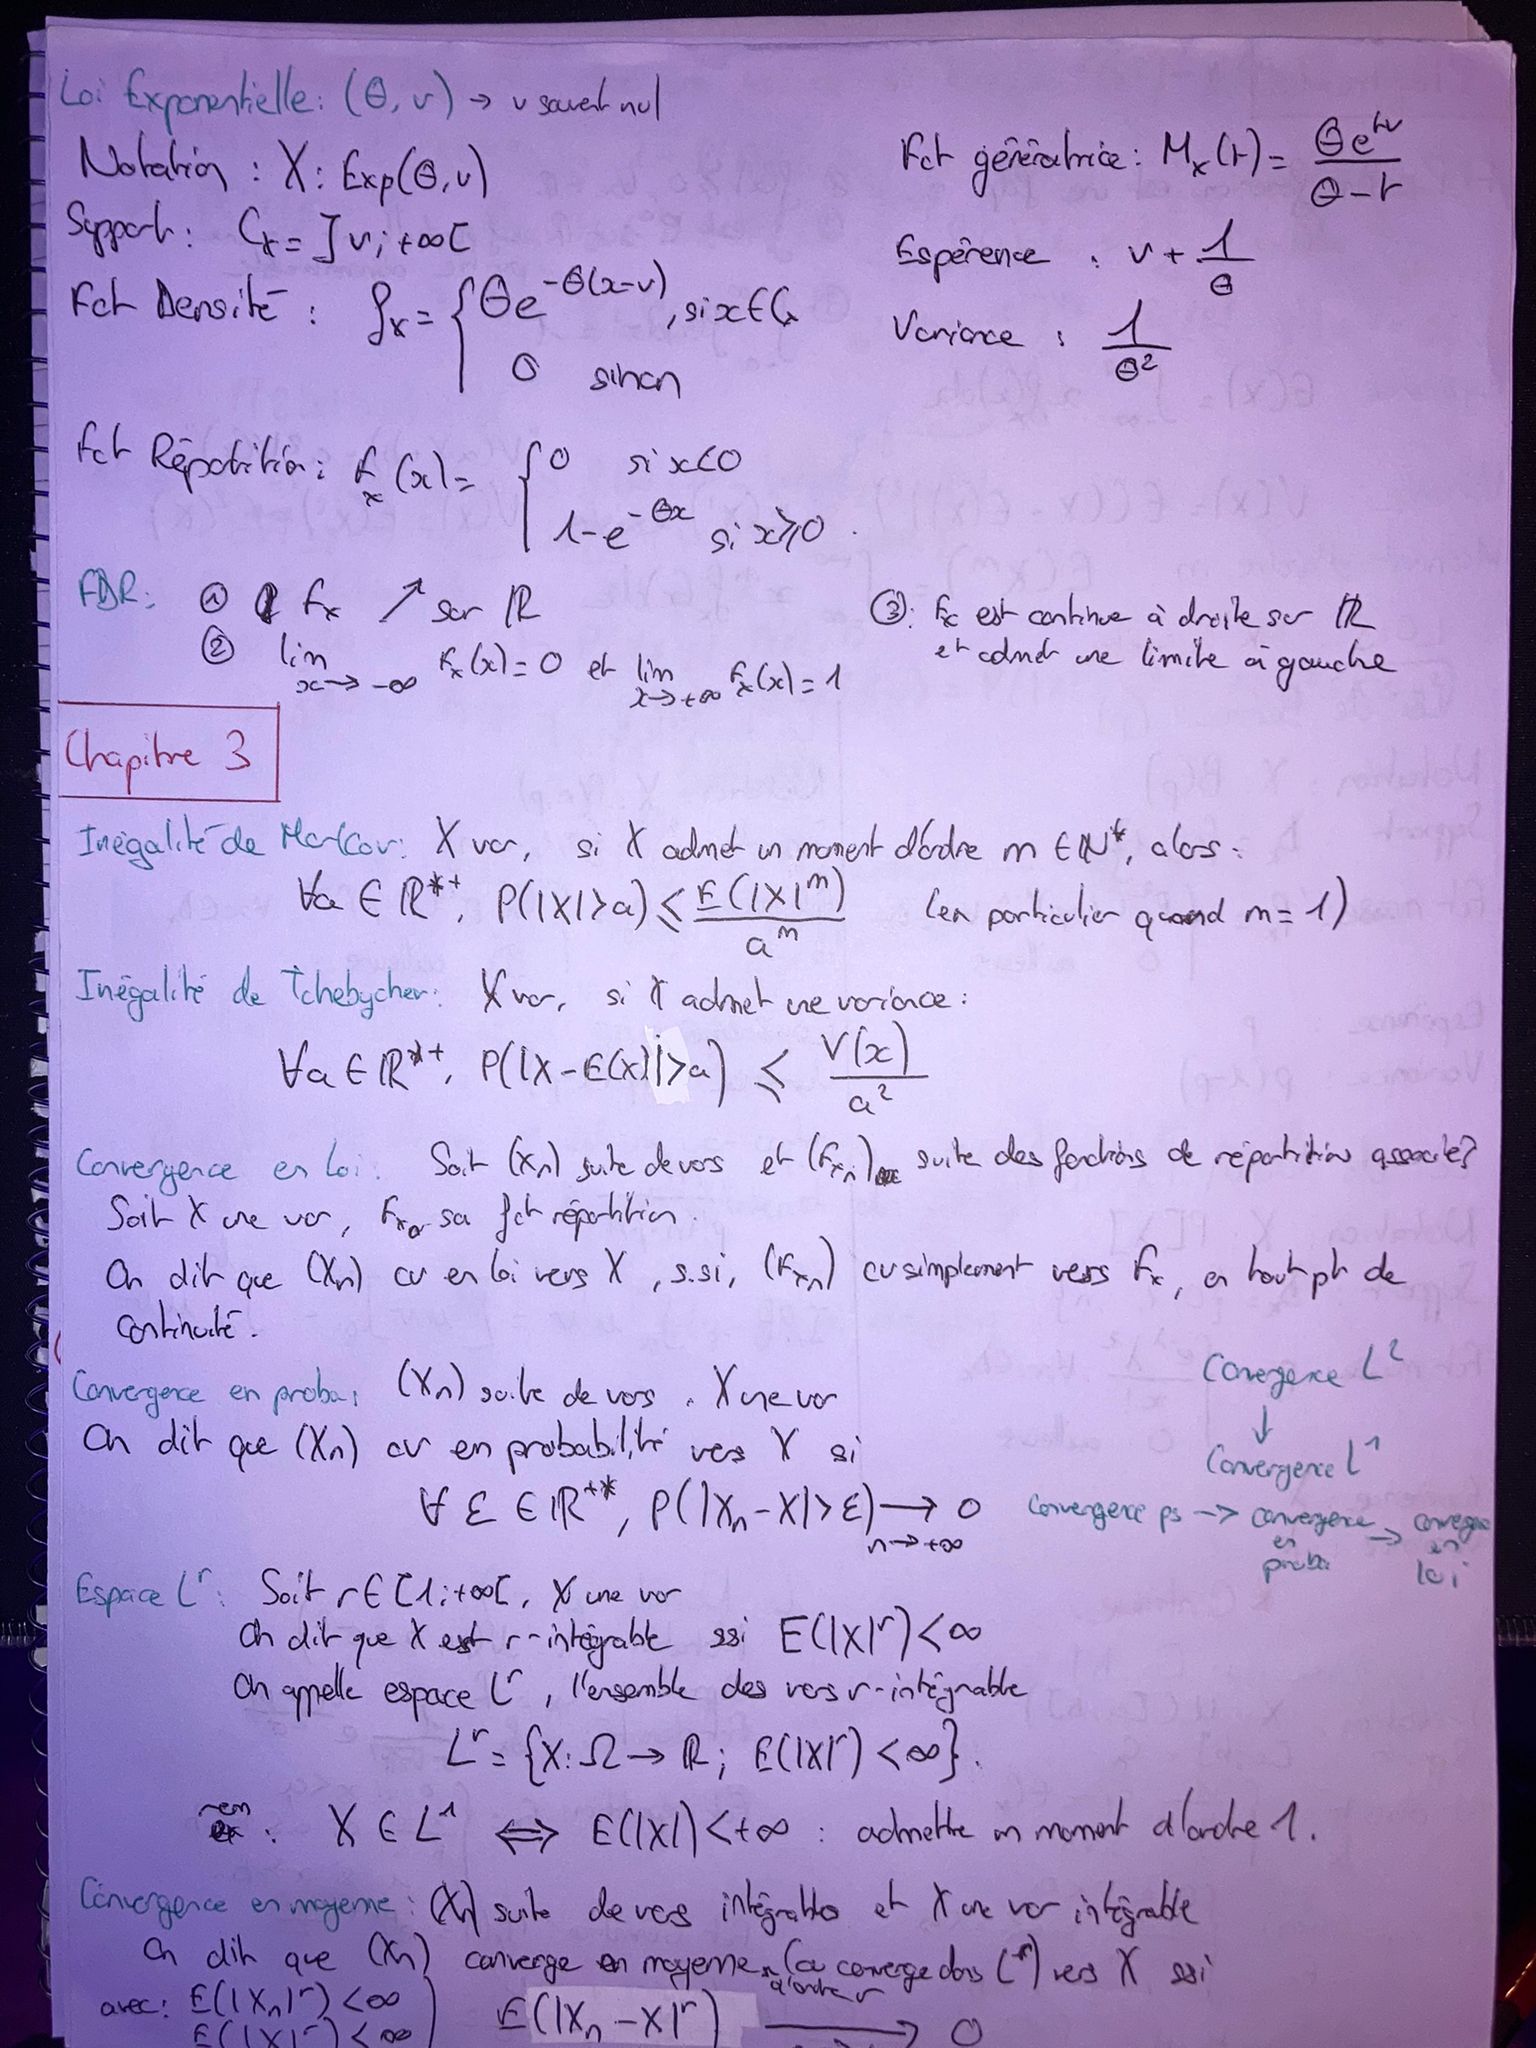 Loi Exponentielle : (θ, v) → v souvent nul
Notation : X : Exp(θ, v)
Support : Cx = ]v ; +∞[
Fct Densité : fx = { θe^{-θ(x-v)}, si x ∈ Cx
0 sinon
Fct génératrice : Mx(t) = θe^{tv} / (θ-t)
Espérence : v + 1/θ
Variance : 1/θ²
Fct Répartition : Fx(x) = { 0 si x<0
1-e^{-θx} si x⩾0.
FDR : ① Fx ↗ sur ℝ
② lim x→-∞ Fx(x) = 0 et lim x→+∞ Fx(x) = 1
③ : Fx est continue à droite sur ℝ
et admet une limite à gauche
Chapitre 3
Inégalité de Markov : X var, si X admet un moment d'ordre m ∈ ℕ*, alors :
∀a ∈ ℝ*+, P(|X|>a) ⩽ E(|X|^m) / a^m (en particulier quand m=1)
Inégalité de Tchebychev : X var, si X admet une variance :
∀a ∈ ℝ*+, P(|X-E(X)|>a) ⩽ V(x) / a²
Convergence en Loi : Soit (Xn) suite de vars et (Fxn) suite des fonctions de répartition associées
Soit X une var, Fx sa fct répartition.
On dit que (Xn) cv en loi vers X, s.si, (Fxn) cv simplement vers Fx, en tout pt de
continuité.
Convergence en proba : (Xn) suite de vars. X une var
On dit que (Xn) cv en probabilité vers X si
∀ ε ∈ ℝ+*, P(|Xn-X|>ε) → 0
n→+∞
Convergence L²
↓
Convergence L¹
Convergence ps → convergence en proba → convergence en loi
Espace L^r : Soit r ∈ [1 ; +∞[, X une var
On dit que X est r-intégrable ssi E(|X|^r) < ∞
On appelle espace L^r, l'ensemble des vars r-intégrable
L^r = {X : Ω → ℝ ; E(|X|^r) < ∞}.
rem : X ∈ L¹ ⟺ E(|X|) < +∞ : admettre un moment d'ordre 1.
Convergence en moyenne : (Xn) suite de vars intégrables et X une var intégrable
On dit que (Xn) converge en moyenne d'ordre r (ou converge dans L^r) vers X ssi
avec : E(|Xn|^r) < ∞
E(|X|^r) < ∞
E(|Xn-X|^r) → 0